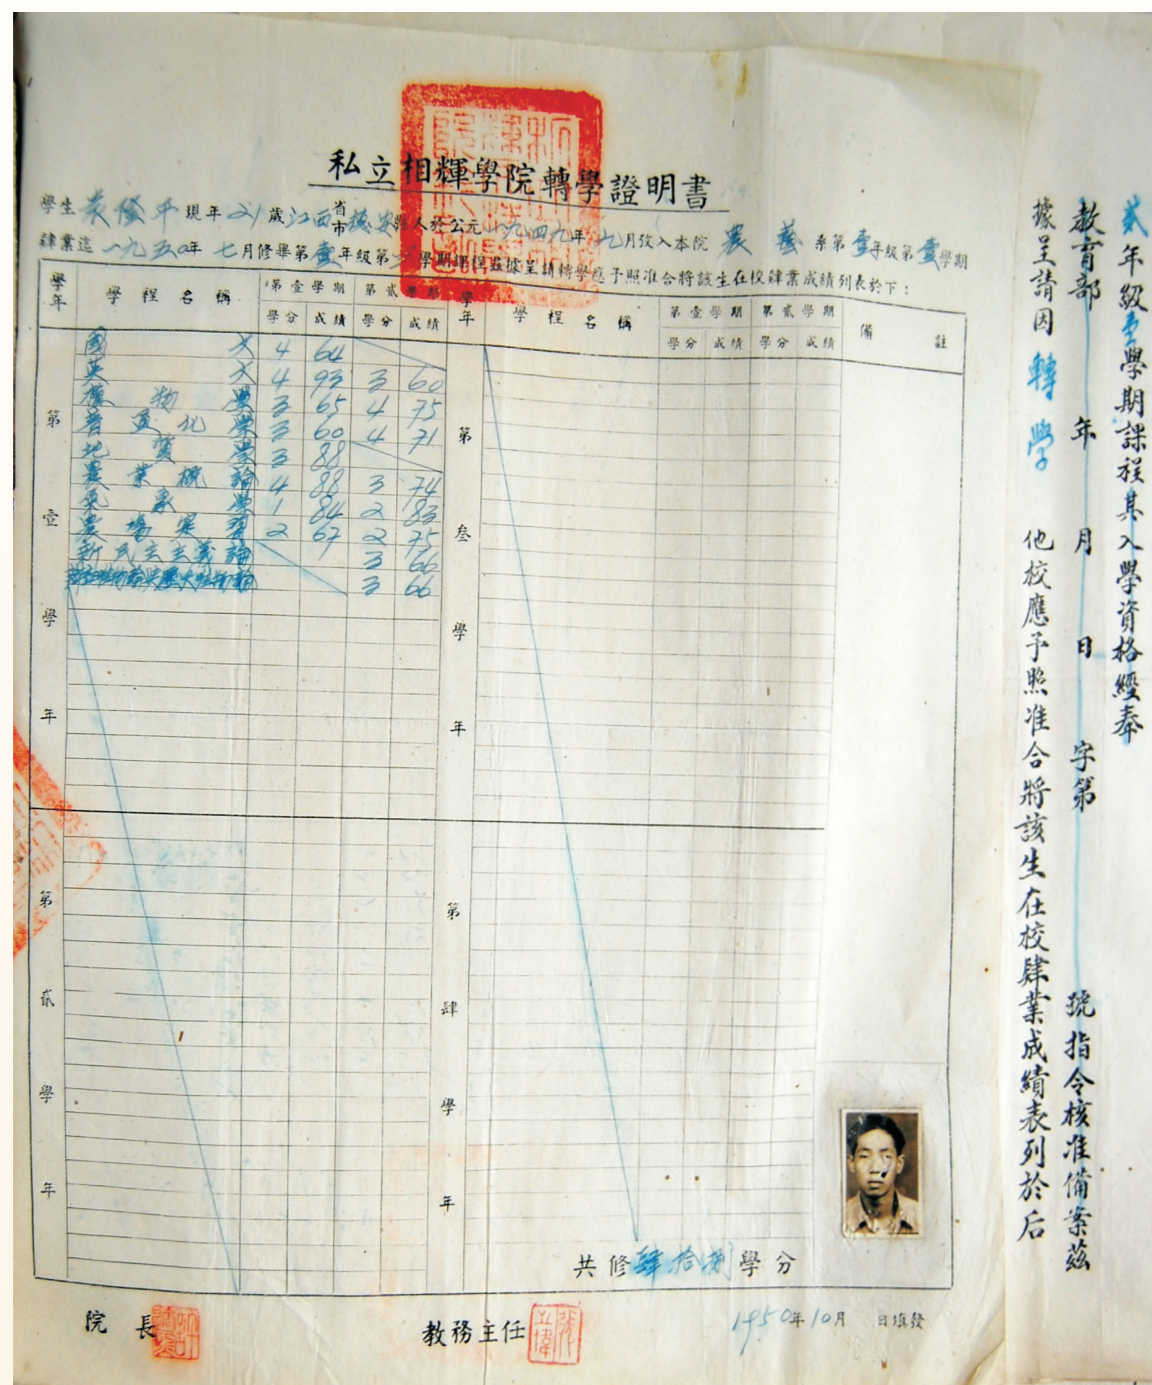 私立相輝學院轉學證明書
學生袁隆平現年21歲江西省市德安縣人於公元一九四九年九月攷入本院農藝系第壹年級第壹學期
肄業迄一九五〇年七月修畢第壹年級第二學期課程茲據呈請轉學應予照准合將該生在校肄業成績列表於下:
學年 學程名稱 第壹學期 第貳學期 學年 學程名稱 第壹學期 第貳學期 備註
學分 成績 學分 成績 學分 成績 學分 成績
第壹學年
國文 4 64
英文 4 93 3 60
植物學 3 65 4 75
普通化學 3 60 4 71
地質學 3 88
農業概論 4 88 3 74
氣象學 1 84 2 83
農場實習 2 67 2 75
新民主主義論 3 66
3 66
第貳學年
第叁學年
第肆學年
共修肆拾捌學分
院長
教務主任 張立偉
1950年10月 日填發
貳年級壹學期課程其入學資格經奉
教育部 年 月 日 字第 號指令核准備案茲
據呈請因轉學他校應予照准合將該生在校肄業成績表列於后